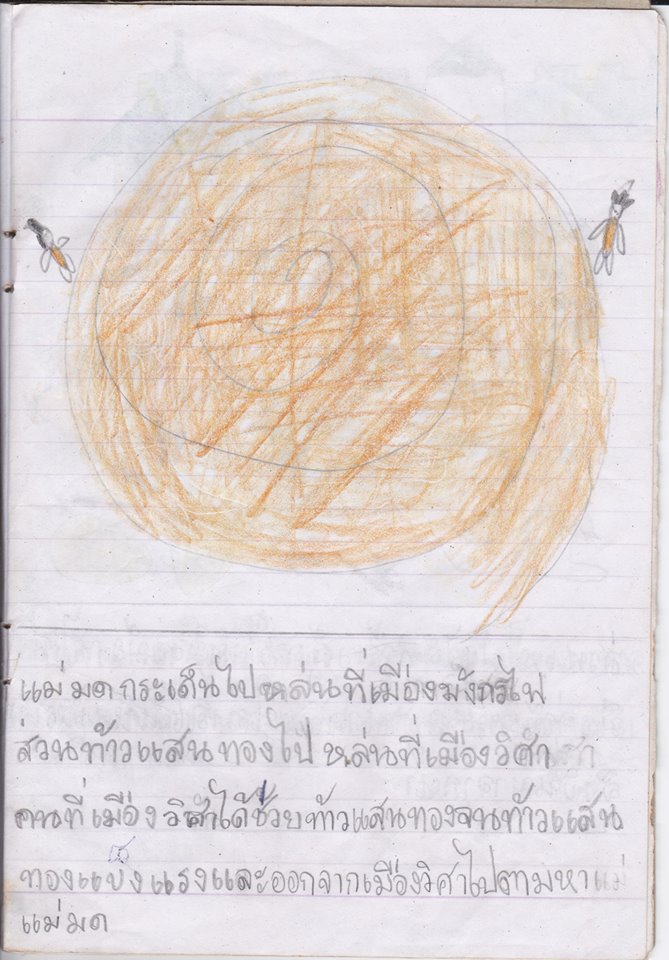 แม่มดกระเด็นไปหล่นที่เมืองมังกรไฟ
ส่วนท้าวแสนทองไป หล่นที่เมืองวิศำ
คนที่เมืองวิศำได้ช่วยท้าวแสนทองจนท้าวแสน
ทองแข็งแรงและออกจากเมืองวิศำไปตามหา
แม่มด